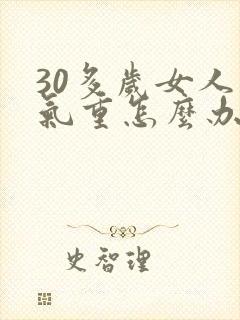 30多歲女人
氣重怎麼办
史智理